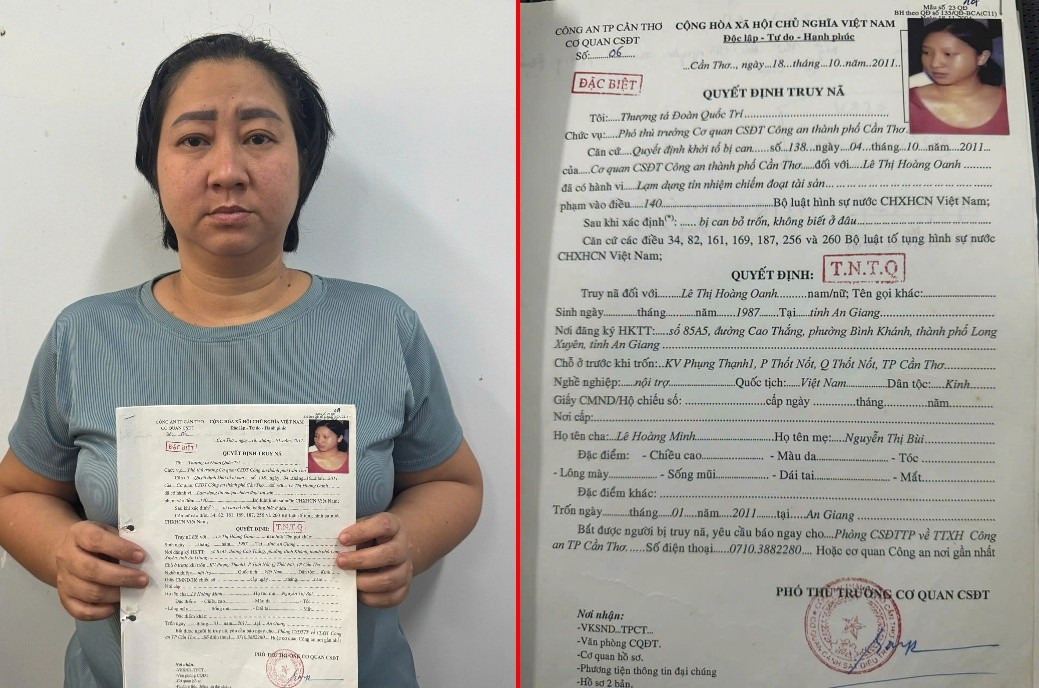 Mẫu số 23 QĐ
BH theo QĐ số 135/QĐ-BCA(C11)
CÔNG AN TP CẦN THƠ
CƠ QUAN CSĐT
Số:.......06......
CỘNG HÒA XÃ HỘI CHỦ NGHĨA VIỆT NAM
Độc lập - Tự do - Hạnh phúc
...Cần Thơ.., ngày...18...tháng...10..năm..2011..
ĐẶC BIỆT
QUYẾT ĐỊNH TRUY NÃ
Tôi:.......Thượng tá Đoàn Quốc Trí
Chức vụ:...Phó thủ trưởng Cơ quan CSĐT Công an thành phố Cần Thơ.
Căn cứ....Quyết định khởi tố bị can.....số..138...ngày....04....tháng..10...năm....2011...
của.....Cơ quan CSĐT Công an thành phố Cần Thơ....đối với....Lê Thị Hoàng Oanh
đã có hành vi...Lạm dụng tín nhiệm chiếm đoạt tài sản...
phạm vào điều......140......Bộ luật hình sự nước CHXHCN Việt Nam;
Sau khi xác định(*): ...... bị can bỏ trốn, không biết ở đâu
Căn cứ các điều 34, 82, 161, 169, 187, 256 và 260 Bộ luật tố tụng hình sự nước
CHXHCN Việt Nam;
QUYẾT ĐỊNH:
T.N.T.Q
Truy nã đối với......Lê Thị Hoàng Oanh.........nam/nữ; Tên gọi khác:
Sinh ngày............tháng............năm....1987....Tại....tỉnh An Giang
Nơi đăng ký HKTT:.....số 85A5, đường Cao Thắng, phường Bình Khánh, thành phố Long
Xuyên, tỉnh An Giang
Chỗ ở trước khi trốn:..KV Phụng Thạnh1, P Thốt Nốt, Q Thốt Nốt, TP Cần Thơ
Nghề nghiệp:.....nội trợ............Quốc tịch:......Việt Nam............Dân tộc:.....Kinh
Giấy CMND/Hộ chiếu số: ...............cấp ngày ..........tháng............năm
Nơi cấp:
Họ tên cha:...Lê Hoàng Minh................Họ tên mẹ:....Nguyễn Thị Bùi
Đặc điểm: - Chiều cao............- Màu da............- Tóc
- Lông mày............- Sống mũi............- Dái tai............- Mắt
Đặc điểm khác:
Trốn ngày............tháng....01....năm....2011......tại....An Giang
Bắt được người bị truy nã, yêu cầu báo ngay cho....Phòng CSĐTTP về TTXH Công
an TP Cần Thơ.....Số điện thoại......0710.3882280.... Hoặc cơ quan Công an nơi gần nhất
PHÓ THỦ TRƯỞNG CƠ QUAN CSĐT
Nơi nhận:
-VKSND...TPCT...
-Văn phòng CQĐT.
-Cơ quan hồ sơ.
-Phương tiện thông tin đại chúng
-Hồ sơ 2 bản.